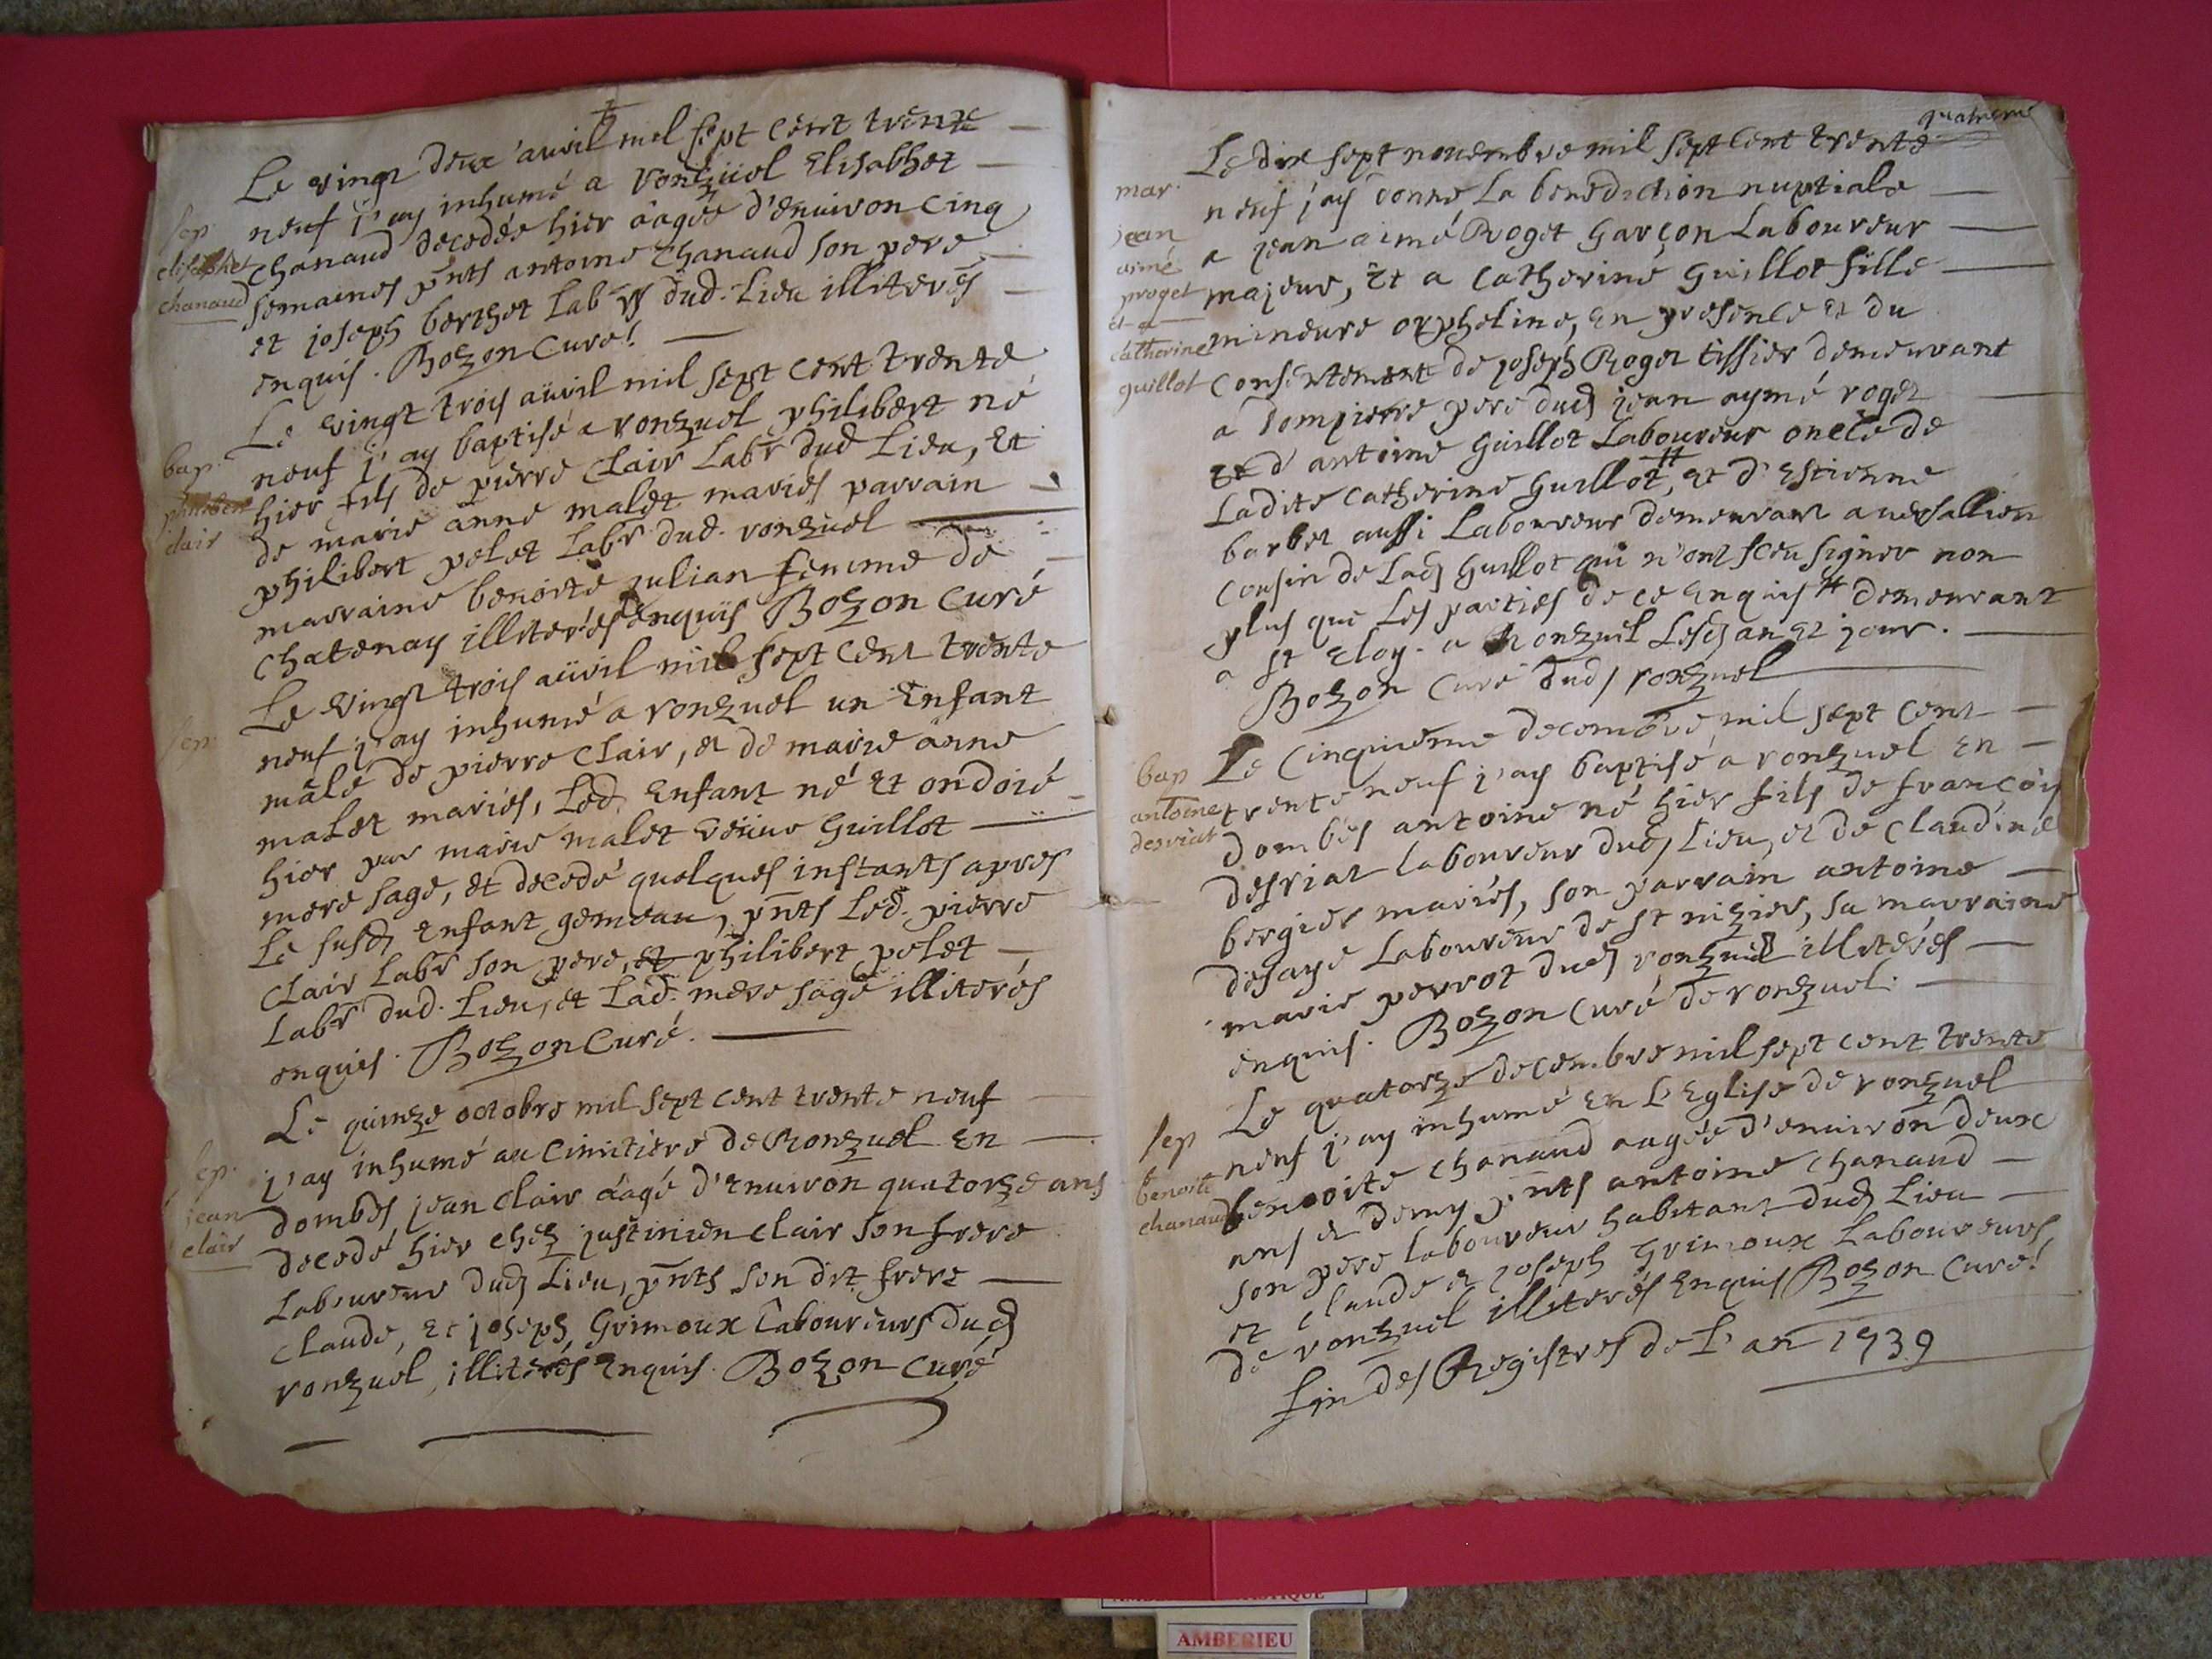 Le vingt deux auril mil sept cent trente
neuf j'ay inhumé a ronzüel Elisabhet
chanaud decedée hier âagée d'enuiron cinq
semaines pnts antoine chanaud son pere
et joseph berthet labrs dud. Lieu illiterés
enquis. Bozon Curé
sep
elisabhet
chanaud
Le vingt trois auril mil sept cent trente
neuf j'ay baptisé a ronzuel philibert né
hier fils de pierre Clair Labr dud Lieu, Et
de marie anne malet mariés parrain
philibert polet Labr dud. ronzuel
marraine benoite julian femme de
Chatenay illiterés enquis Bozon Curé
bap.
philibert
clair
Le vingt trois auril mil sept cent trente
neuf j'ay inhumé a ronzuel un Enfant
mâle de pierre Clair, et de marie anne
malet mariés, Led. Enfant né Et ondoié
hier par marie malet veuue Guillot
mere sage, et decedé quelques instants apres
Le susd Enfant gemeau, pnts Led. pierre
Clair Labr son pere, et philibert polet
Labr dud. Lieu, et Lad. mere sage illiterés
enquis. Bozon Curé.
sep
Le quinze octobre mil sept cent trente neuf
j'ay inhumé au Cimitiere de Ronzuel En
dombes jean Clair âagé d'Enuiron quatorze ans
decedé hier chez justinien Clair son frere
Laboureur dud Lieu, pnts son dit frere
Claude, Et joseph Grimoux Laboureurs dud
ronzuel, illiterés Enquis. Bozon Curé
sep.
jean
clair
quatrieme
Le dix sept nouembre mil sept Cent trente
neuf j'ay donné La benediction nuptiale
a jean aimé Roget Garçon Laboureur
majeur, Et a Catherine Guillot fille
mineure orpheline, En presence Et du
Consentement de joseph Roget tissier demeurant
a Dompierre pere dud jean aymé roget
Et d'antoine Guillot Laboureur oncle de
Ladite Catherine Guillot #, Et d'Estienne
barbet aussi Laboureur demeurant a uersallieu
Cousin de Lad Guillot qui n'ont sceu signer non
plus que Les parties de ce Enquis # demeurant
a st Eloy. a Ronzuel Lesd an Et jour.
Bozon Curé dud ronzuel
mar.
jean
aimé
proget
et a
Catherine
guillot
Le Cinquieme decembre mil sept Cent
trente neuf j'ay baptisé a ronzuel En
Dombes antoine né hier fils de françois
desriat laboureur dud Lieu, et de Claudine
bergier mariés, son parrain antoine
desaye Laboureur de st nizier, sa marraine
marie perrot dud ronzuel illiterés
enquis. Bozon Curé de ronzuel.
bap
antoine
desriat
Le quatorze decembre mil sept cent trente
neuf j'ay inhumé En L'Eglise de ronzuel
benoite chanaud aagée d'enuiron deux
ans et demy pnts antoine Chanaud
son pere laboureur habitant dud Lieu
et Claude et joseph Grimoux Laboureurs,
de ronzuel illiterés Enquis Bozon Curé
sep
benoite
chanaud
fin des Registres de L'an 1739
AMBERIEU